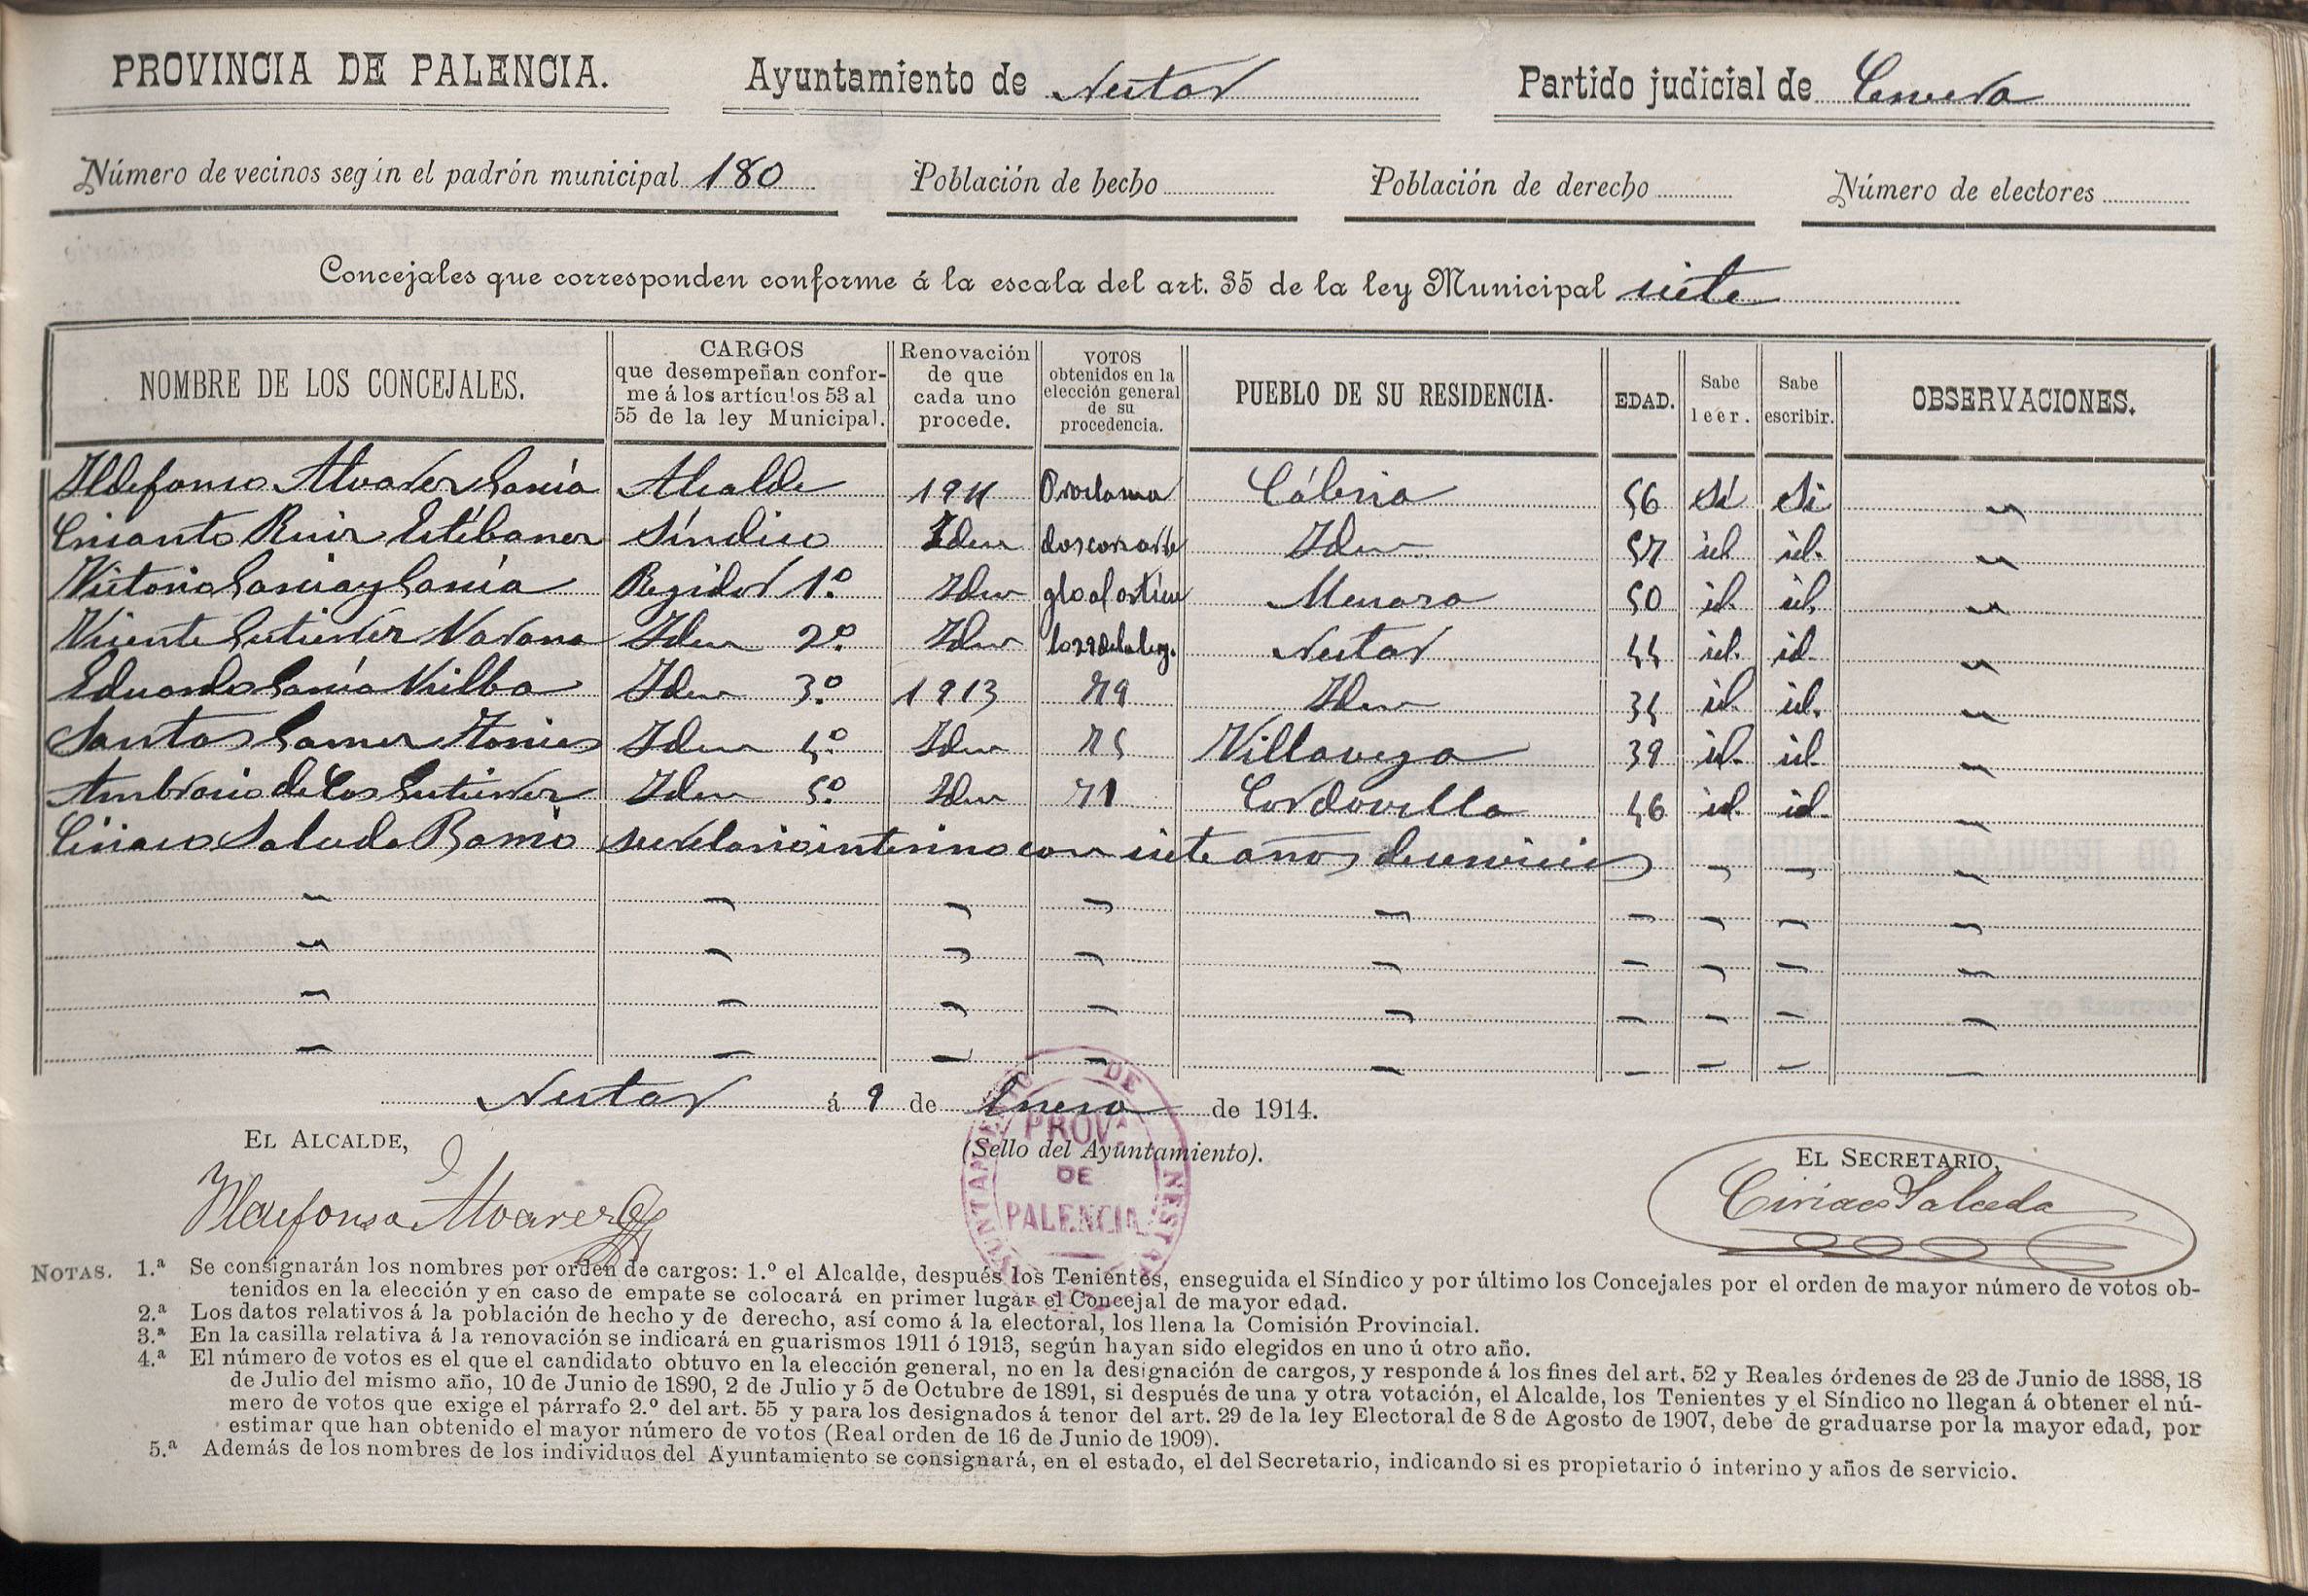 PROVINCIA DE PALENCIA. Ayuntamiento de Nestar Partido judicial de Cervera
Número de vecinos según el padrón municipal 180 Población de hecho Población de derecho Número de electores
Concejales que corresponden conforme á la escala del art. 35 de la ley Municipal siete
NOMBRE DE LOS CONCEJALES. CARGOS que desempeñan conforme á los artículos 53 al 55 de la ley Municipal. Renovación de que cada uno procede. VOTOS obtenidos en la elección general de su procedencia. PUEBLO DE SU RESIDENCIA. EDAD. Sabe leer. Sabe escribir. OBSERVACIONES.
Ildefonso Alvarez García Alcalde 1911 Proclama Cábria 56 Sí Si "
Crisanto Ruiz Estébanez Síndico Idem dos con arre Idem 57 id id. "
Victorio Garcia y García Regidor 1º Idem glo al artícu Menaza 50 id. id. "
Vicente Gutierrez Idem 2º Idem lo 29 de la ley. Nestar 44 id. id. "
Eduardo García Idem 3º 1913 79 Idem 34 id. id. "
Santos Gomez Idem 4º Idem 75 Villavega 39 id. id. "
Ambrosio de Cos Gutierrez Idem 5º Idem 71 Cordovilla 46 id. id. "
Ciriaco Salceda Barrio secretario interino con siete años de servicio
Nestar á 9 de Enero de 1914.
EL ALCALDE, (Sello del Ayuntamiento). EL SECRETARIO,
Ildefonso Alvarez Ciriaco Salceda
AYUNTAMIENTO DE NESTAR
PROVA
DE
PALENCIA
NOTAS. 1.ª Se consignarán los nombres por orden de cargos: 1.º el Alcalde, después los Tenientes, enseguida el Síndico y por último los Concejales por el orden de mayor número de votos ob-
tenidos en la elección y en caso de empate se colocará en primer lugar el Concejal de mayor edad.
2.ª Los datos relativos á la población de hecho y de derecho, así como á la electoral, los llena la Comisión Provincial.
3.ª En la casilla relativa á la renovación se indicará en guarismos 1911 ó 1913, según hayan sido elegidos en uno ú otro año.
4.ª El número de votos es el que el candidato obtuvo en la elección general, no en la designación de cargos, y responde á los fines del art. 52 y Reales órdenes de 23 de Junio de 1888, 18
de Julio del mismo año, 10 de Junio de 1890, 2 de Julio y 5 de Octubre de 1891, si después de una y otra votación, el Alcalde, los Tenientes y el Síndico no llegan á obtener el nú-
mero de votos que exige el párrafo 2.º del art. 55 y para los designados á tenor del art. 29 de la ley Electoral de 8 de Agosto de 1907, debe de graduarse por la mayor edad, por
estimar que han obtenido el mayor número de votos (Real orden de 16 de Junio de 1909).
5.ª Además de los nombres de los individuos del Ayuntamiento se consignará, en el estado, el del Secretario, indicando si es propietario ó interino y años de servicio.